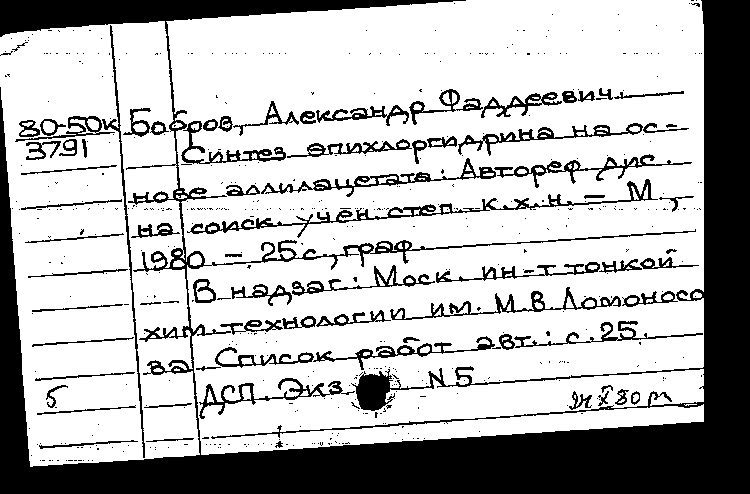 80-50к Бобров, Александр Фаддеевич.
3791 Синтез эпихлоргидрина на ос-
нове аллилацетата: Автореф. дис.
на соиск. учен. степ. к.х.н. - М.,
1980. - 25с., граф.
В надзаг: Моск. ин-т тонкой
хим. технологии им. М.В. Ломоносо
ва. Список работ авт.: с. 25.
5 ДСП. Экз N 5